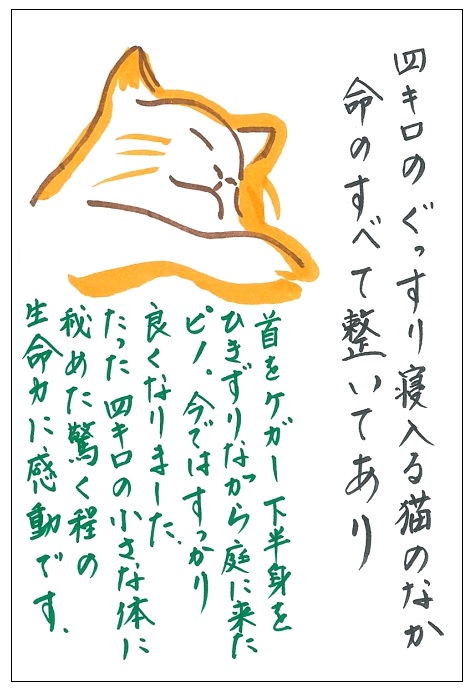 四キロのぐっすり寝入る猫のなか
命のすべて整いてあり
首をケガし下半身を
ひきずりながら庭に来た
ピノ。今ではすっかり
良くなりました。
たった四キロの小さな体に
秘めた驚く程の
生命力に感動です。